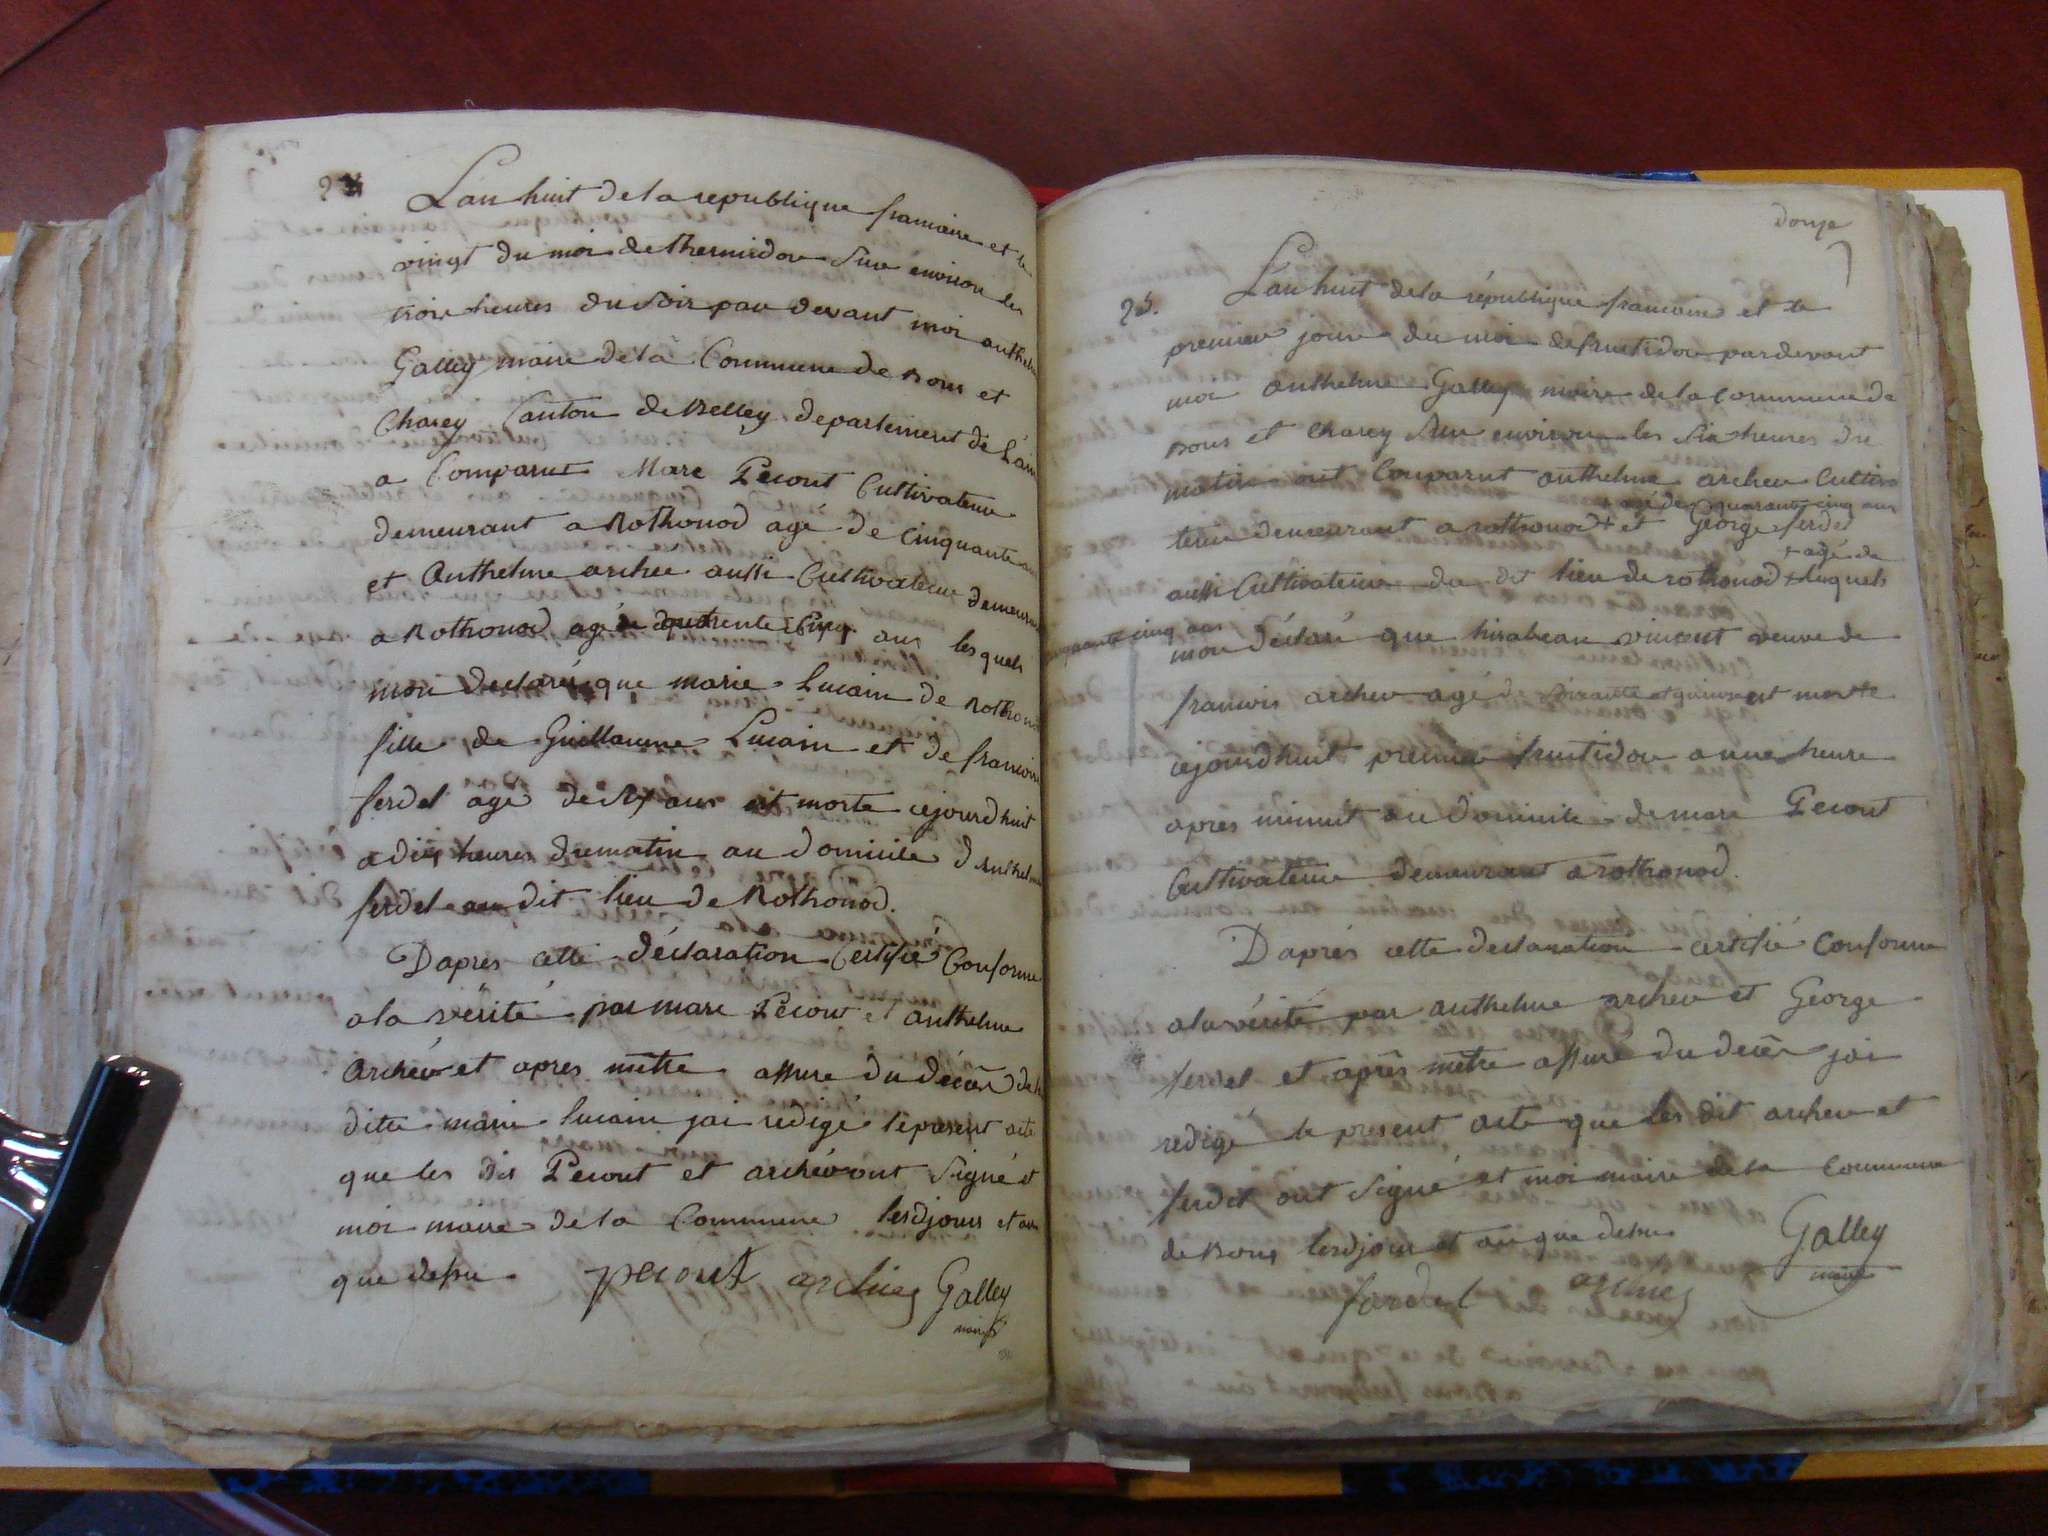 24
L'an huit de la republique francaise et le
vingt du moi de thermidor Sur environ les
trois heures du soir par devant moi anthelme
Galley maire de la Commune de Bons et
Chazey Canton de Belley departement de L'ain
a Comparut Marc Pecout Cultivateur
demeurant a Rothonod agé de Cinquante ans
et Anthelme archer aussi Cultivateur demeurant
a Rothonod agé de quarente cinq ans lesquels
mon declarés que marie Lucain de Rothonod
fille de Guillaume Lucain et de francoise
ferdel agé de six ans est morte cejourdhuit
a dix heures du matin au domicile d'Anthelme
ferdel au dit lieu de Rothonod.
Daprès cette déclaration Certifié Conforme
a la vérité par marc Pecout et Anthelme
Archer et apres mêttre assure du décès de la
ditte marie lucain jai redigé le présent acte
que les dit Pecout et archer ont Signé et
moi maire de la Commune lesdjour et an
que dessu
pecout archer Galley
maire
donze
25.
L'an huit de la république francoise et le
premier jour du moi de fructidor pardevant
moi anthelme Galley maire de la commune de
Bons et Chazey Sur environ les Six heures du
matin ont Comparut anthelme archer Cultiva
+ agé de quarante cinq ans
teur demeurant a rothonod + et George ferdel
+ agé de
aussi Cultivateur du dit lieu de rothonod + lesquels
cinquante cinq ans
mon déclaré que vincent veuve de
francois archer agé de soixante et quinze est morte
cejourdhuit premier fructidor a une heure
après minuit au Domicile de marc Pecout
Cultivateur demeurant a rothonod.
Daprés cette declaration certifié Conforme
a la vérité par anthelme archer et George
ferdel et après mêtre assuré du decès jai
redigé le present acte que les dit archer et
ferdel ont Signé et moi maire de la Commune
de Bons lesdjour et an que dessu
Galley
maire
fardel archer